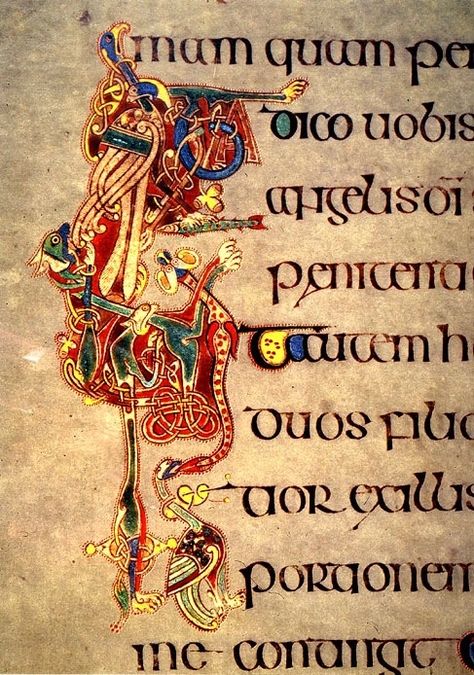 mam quam pe
dico uobis
angelis dī
penitentia
autem h
duos filio
tior ex illis
portionem
me contingt